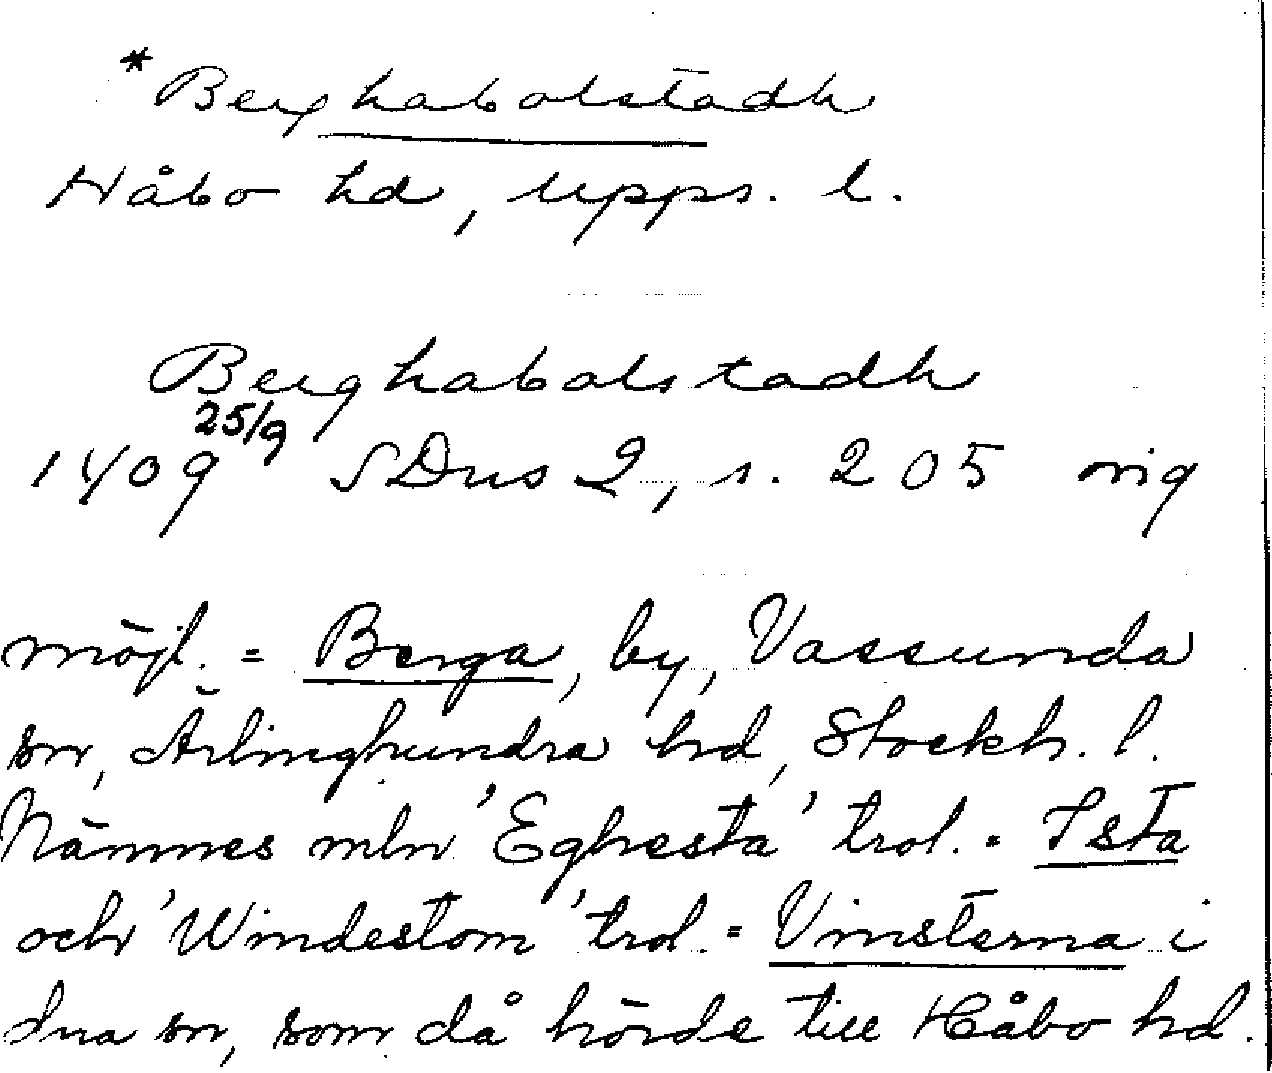 *Berghabolstadh
Håbo hd, Upps. l.
Berghabolstadh
1409 25/9 SDns 2, s. 205 orig
möjl. = Berga, by, Vassunda
sn, Ärlinghundra hd, Stockh. l.
Nämnes mln 'Eghesta' trol. = Ista
och 'Windestom' trol. = Vinsterna i
dna sn, som då hörde till Håbo hd.